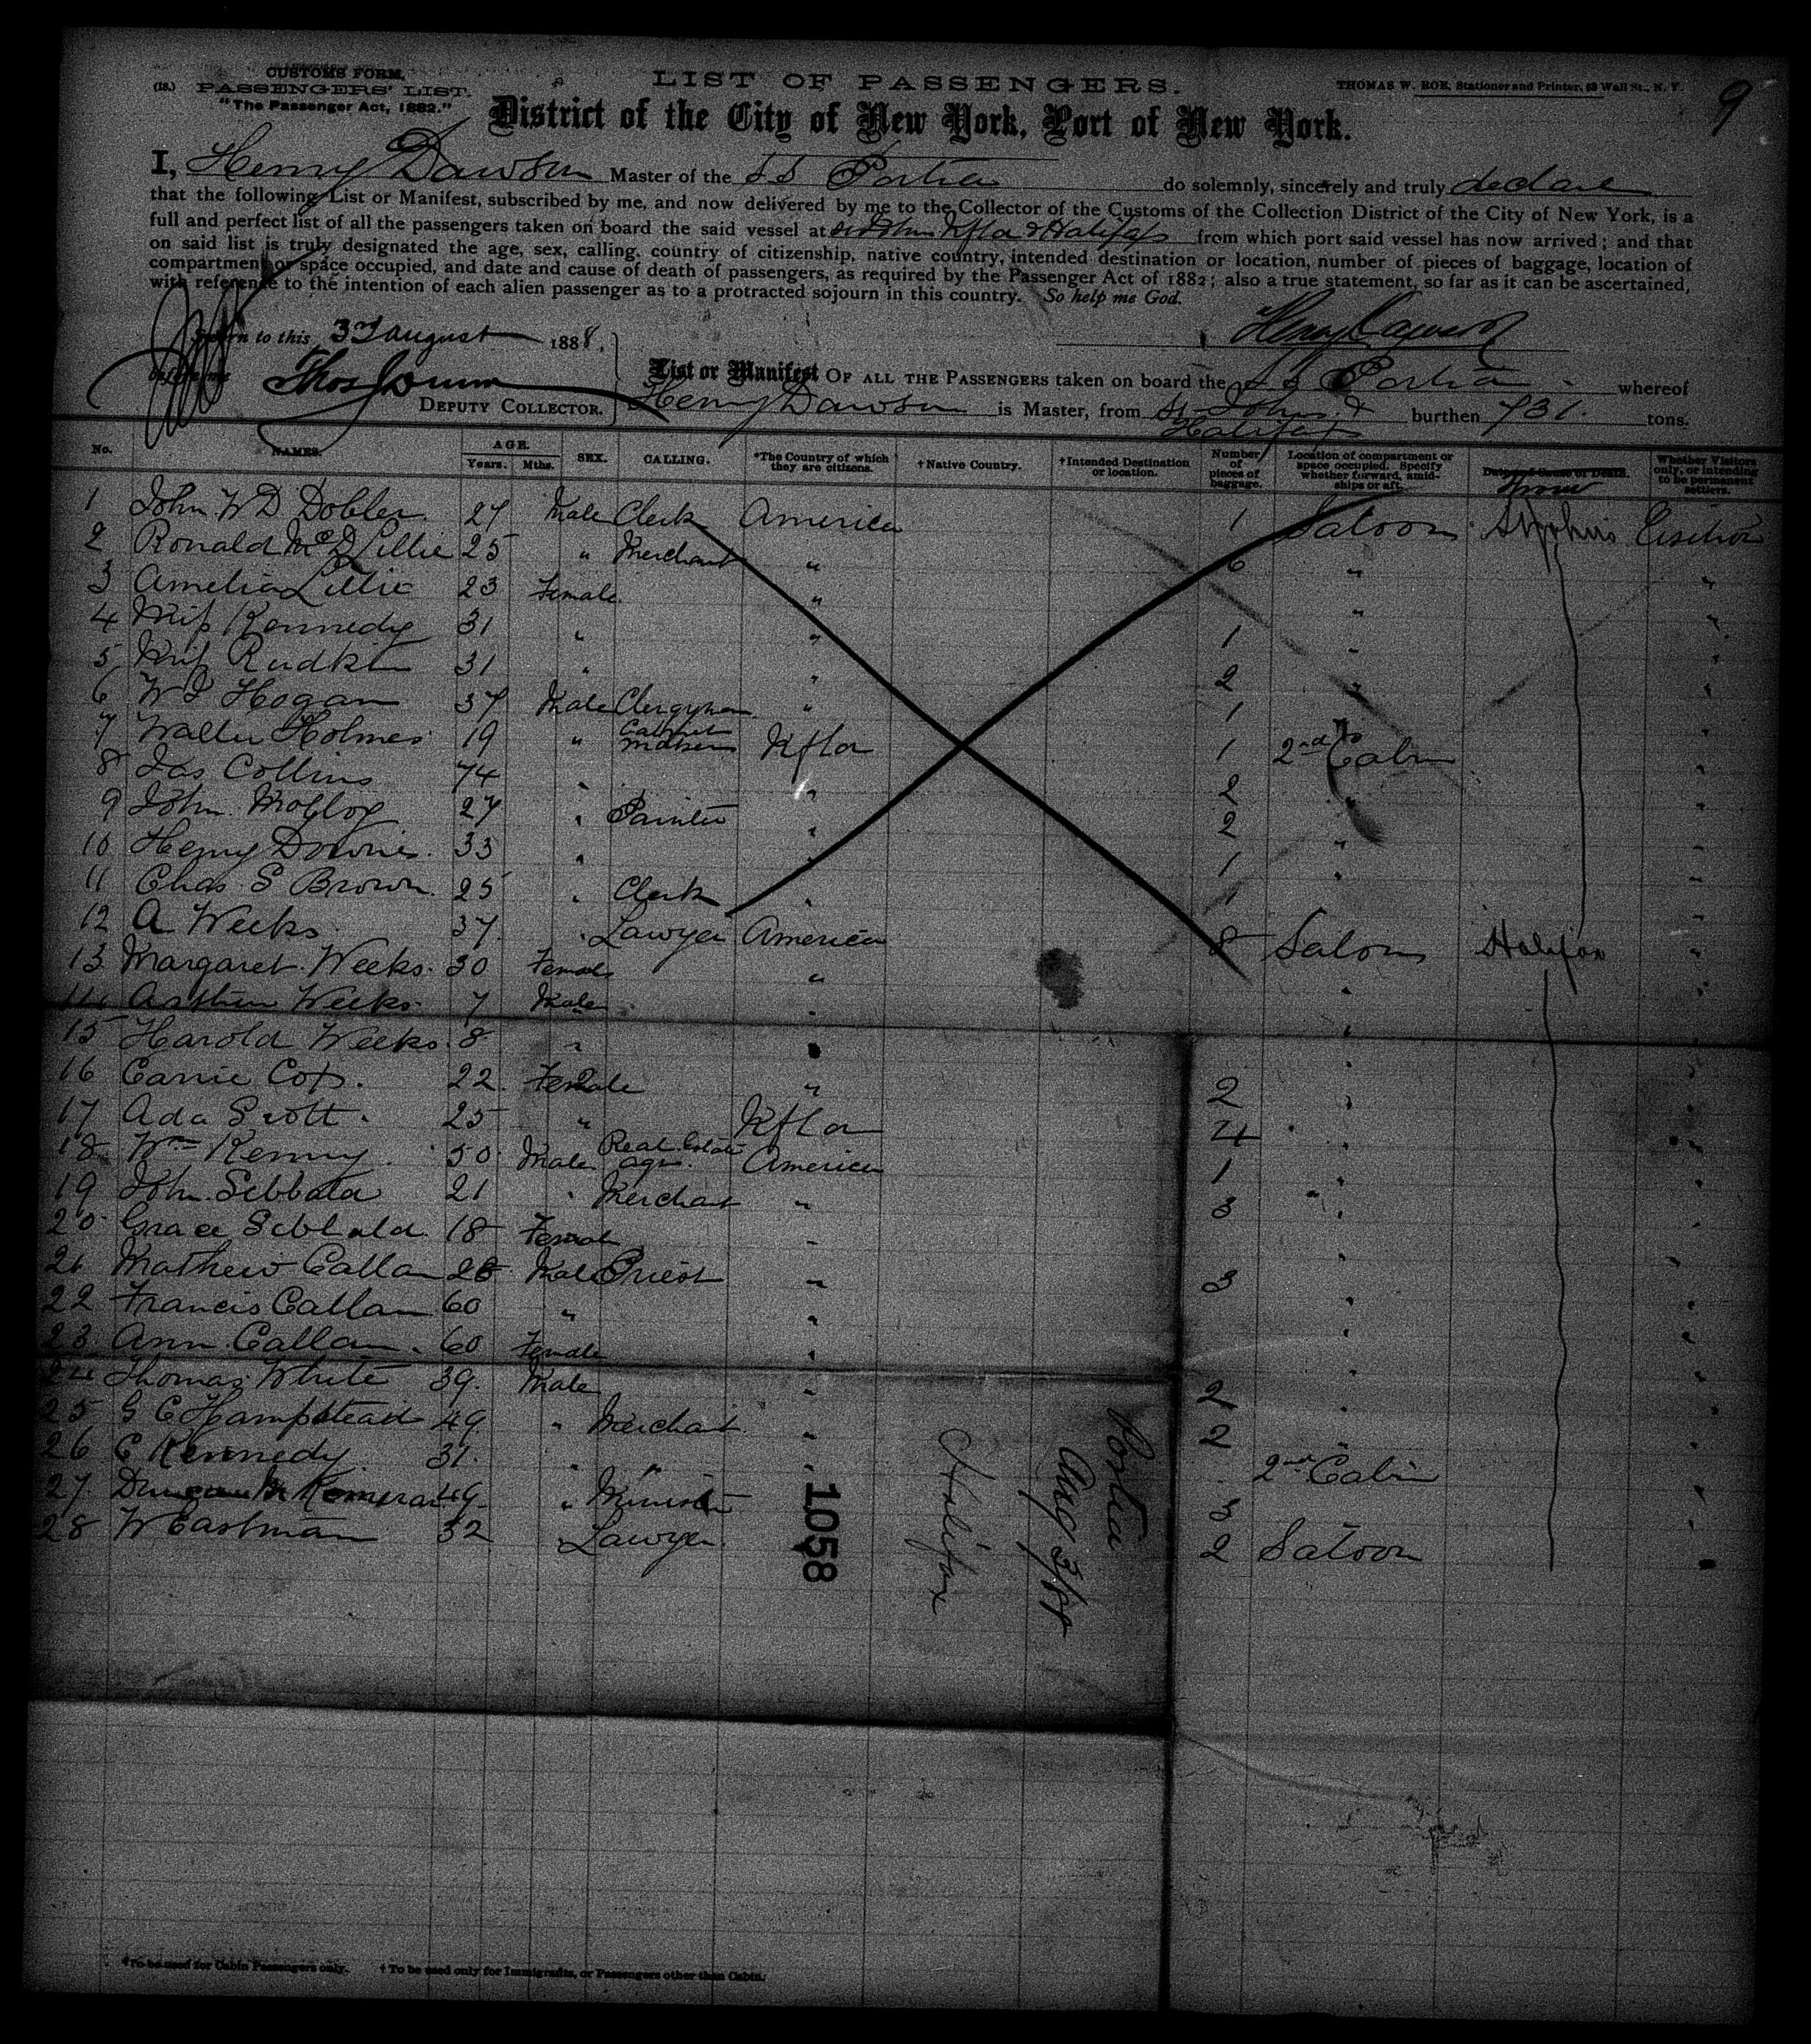 CUSTOMS FORM.
(18.) PASSENGERS' LIST.
"The Passenger Act, 1882."
LIST OF PASSENGERS.
THOMAS W. ROE, Stationer and Printer, 63 Wall St., N. Y.
9
District of the City of New York, Port of New York.
I, Henry Dawson Master of the S S Portia do solemnly, sincerely and truly declare
that the following List or Manifest, subscribed by me, and now delivered by me to the Collector of the Customs of the Collection District of the City of New York, is a
full and perfect list of all the passengers taken on board the said vessel at St Johns Nfld & Halifax from which port said vessel has now arrived; and that
on said list is truly designated the age, sex, calling, country of citizenship, native country, intended destination or location, number of pieces of baggage, location of
compartment or space occupied, and date and cause of death of passengers, as required by the Passenger Act of 1882; also a true statement, so far as it can be ascertained,
with reference to the intention of each alien passenger as to a protracted sojourn in this country. So help me God.
Sworn to this 3rd august 1888,
Henry Dawson
before me
Thos Dunn
DEPUTY COLLECTOR.
List or Manifest OF ALL THE PASSENGERS taken on board the S S Portia whereof
Henry Dawson is Master, from St Johns & Halifax burthen 731. tons.
No. NAMES. AGE. Years. Mths. SEX. CALLING. *The Country of which they are citizens. †Native Country. †Intended Destination or location. Number of pieces of baggage. Location of compartment or space occupied. Specify whether forward, amidships or aft. Date and Cause of Death. From Whether Visitors only, or intending to be permanent settlers.
1 John W D Dobler 27 Male Clerk America 1 Saloon St Johns Visitor
2 Ronald McD Lillie 25 " Merchant " 6 " "
3 Amelia Lillie 23 Female " " "
4 Miss Kennedy 31 " " 1 " "
5 Miss Rudkin 31 " " 2 " "
6 W J Hogan 37 Male Clergyman " 1 "
7 Walter Holmes 19 " Cabinet Maker Nfld 1 2nd Cabin "
8 Jas Collins 74 " " 2 " "
9 John Molloy 27 " Painter " 2 " "
10 Henry Downie 33 " " 1 " "
11 Chas. S Brown 25 " Clerk " 1 "
12 A Weeks 37 " Lawyer America 8 Saloon Halifax "
13 Margaret Weeks 30 Female " " "
14 Arthur Weeks 7 Male " " "
15 Harold Weeks 8 " " " "
16 Carrie Cox 22 Female " 2 " "
17 Ada Scott 25 " Nfld 4 " "
18 Wm Kenny 50 Male Real Estate agn. America 1 " "
19 John Sibbald 21 " Merchant " 3 " "
20 Grace Sibbald 18 Female " " "
21 Mathew Callan 28 Male Priest " 3 " "
22 Francis Callan 60 " " " "
23 Ann Callan 60 Female " " "
24 Thomas White 39 Male " 2 " "
25 G C Hampstead 49 " Merchant " 2 " "
26 C Kennedy 31 " " " 2nd Cabin "
27 Duncan 49 " Minister 3 "
28 W Eastman 32 Lawyer 2 Saloon "
1058
Halifax
Portia
Aug 3/88
*To be used for Cabin Passengers only. †To be used only for Immigrants, or Passengers other than Cabin.